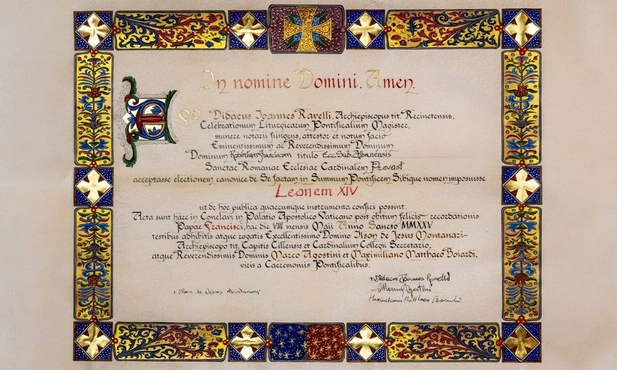 In nomine Domini. Amen
Ego Didacus Ioannes Ravelli, Archiepiscopus tit. Recinetensis,
Celebrationum Liturgicarum Pontificalium Magister,
munere notarii fungens, attestor et notum facio
Eminentissimum ac Reverendissimum Dominum
Dominum Robertum Franciscum titulo Ecc. Sub. Albanensis
Sanctae Romanae Ecclesiae Cardinalem Prevost
acceptasse electionem canonice de Se factam in Summum Pontificem Sibique nomen imposuisse
Leonem XIV
ut de hoc publica quaecumque instrumenta confici possint.
Acta sunt haec in Conclavi in Palatio Apostolico Vaticano post obitum felicis recordationis
Papae Francisci, hac die VIII mensis Maii Anno Sancto MMXXV
testibus adhibitis atque rogatis Excellentissimo Domino Ilson de Jesus Montanari
Archiepiscopo tit. Capitis Cillensis et Cardinalium Collegii Secretario,
atque Reverendissimis Dominis Marco Agostini et Maximiliano Matthaeo Boiardi,
viris a Caeremoniis Pontificalibus.